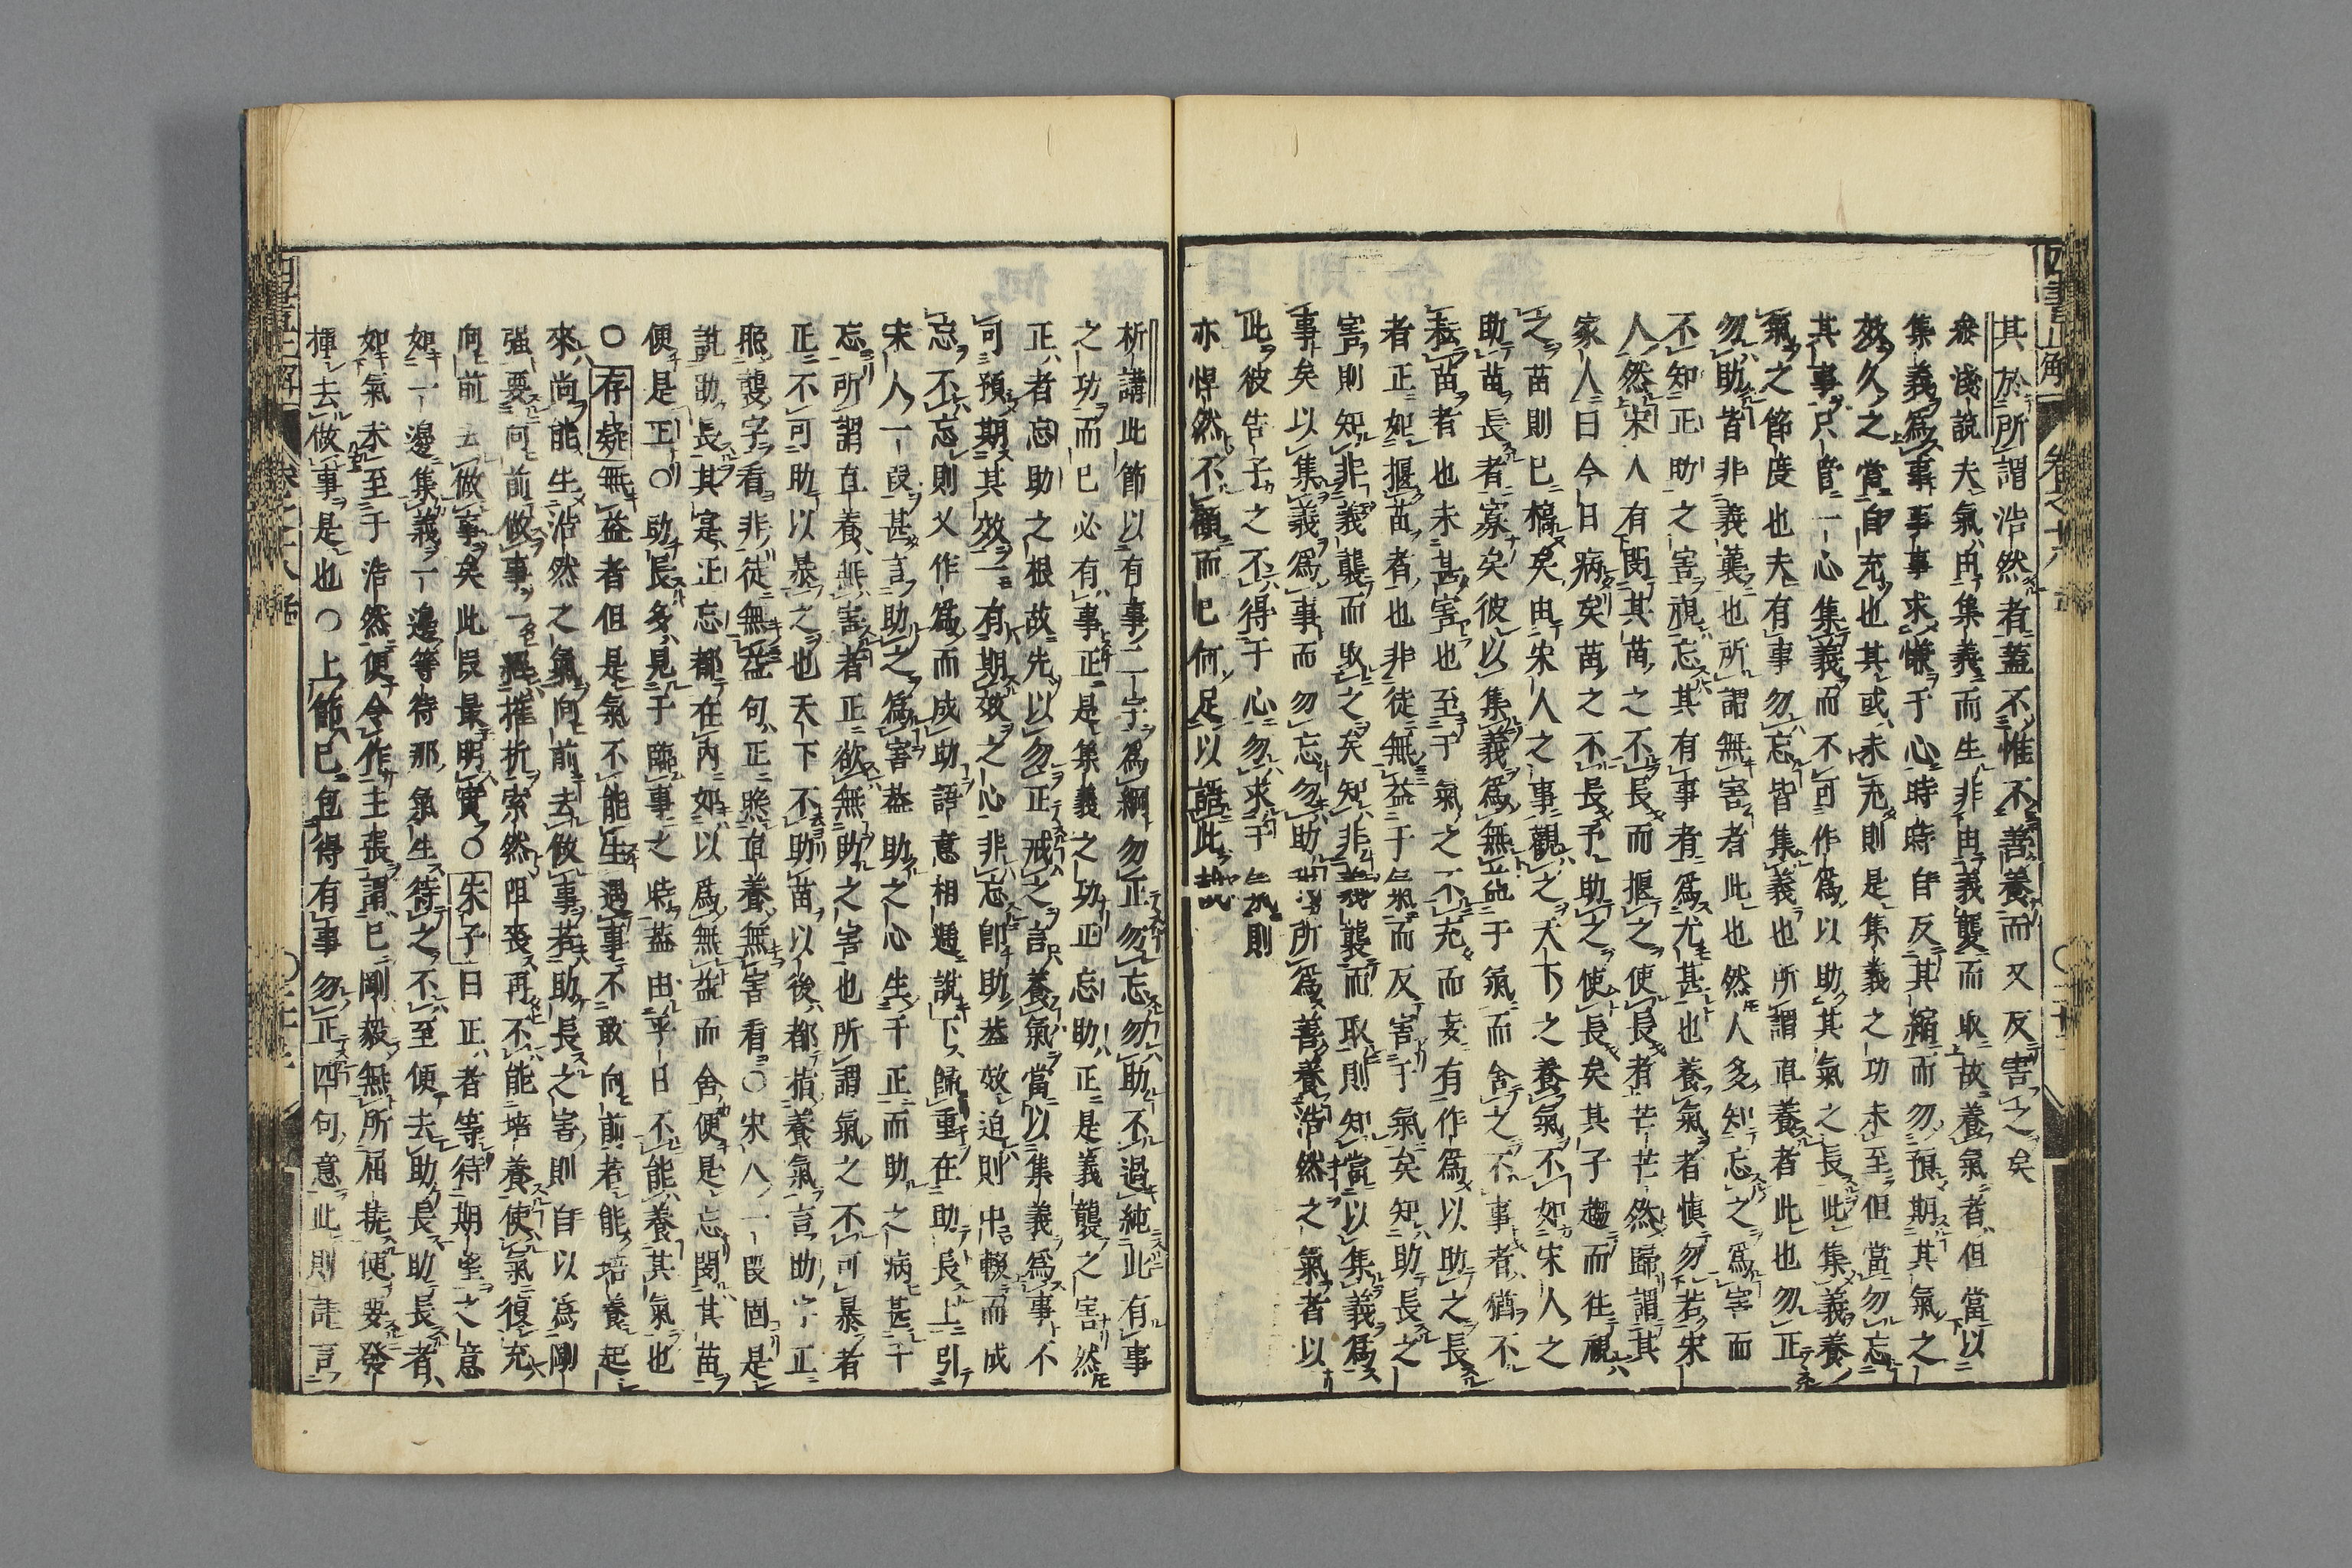 其於所謂浩然者蓋不惟不善養而又反害之矣
叅淺說夫氣由集義而生非由義襲而取故養氣者但當以
集義爲事事事求慊于心時時自反其縮而勿預期其氣之
效久之當自充也其或未充則是集義之功未至但當勿忘
其事只管一心集義而不可作爲以助其氣之長此集義養
氣之節度也夫有事勿忘皆集義也所謂直養者此也勿正
勿助皆非義襲也所謂無害者此也然人多知忘之爲害而
不知正助之害視忘其有事者爲尤甚也養氣者愼勿若宋
人然宋人有閔其苗之不長而揠之使長者芒芒然歸謂其
家人曰今日病矣苗之不長予助之使長矣其子趨而往視
之苗則已槁矣由宋人之事觀之天下之養氣不如宋人之
助苗長者寡矣彼以集義爲無益于氣而舍之不事者猶不
耘苗者也未甚害也至于氣之不充而妄有作爲以助之長
者正如揠苗者也非徒無益于氣而反害于氣矣知助長之
害則知非義襲而取之矣知非義襲而取則知當以集義爲
事矣以集義爲事而勿忘勿助 所爲善養浩然之氣者以
此彼告子之不得于心勿求于氣則
亦悍然不顧而已何足以語此哉
四書正解 卷之十八
析講此節以有事二字爲綱勿正勿忘勿助不過純此有事
之功而已必有事正是集義之功正忘助正是義襲之害然
正者忘助之根故先以勿正戒之言養氣當以集義爲事不
可預期其效一有期效之心非忘卽助蓋效迫則中輟而成
忘不忘則又作爲而成助語意相遞說下歸重在助長上引
宋人一段甚言助之爲害蓋助之心生于正而助之病甚于
忘所謂直養無害者正欲無助之害也所謂氣之不可暴者
正不可助以暴之也天下不助苗以後都指養氣言助字正
照襲字看非徒無益句正照直養無害看○宋人一段固是
說助長其寔正忘都在內如以爲無益而舍便是忘閔其苗
便是正○助長多見于臨事之時蓋由平日不能養其氣也
○存疑無益者但是氣不能生遇事不敢向前若能培養起
來尚能生浩然之氣向前去做事若助長之害則自以爲剛
强要向前做事一遇摧折索然阻喪再不能培養使氣復充
向前去做事矣此段最明實○朱子曰正者等待期望之意
如一邊集義一邊等待那氣生待之不至便去助長助長者
如氣未至于浩然便令作主張謂已剛毅無所屈撓便要發
揮去做事是也○上節已包得有事勿正四句意此則詳言
四書正解 卷之十八